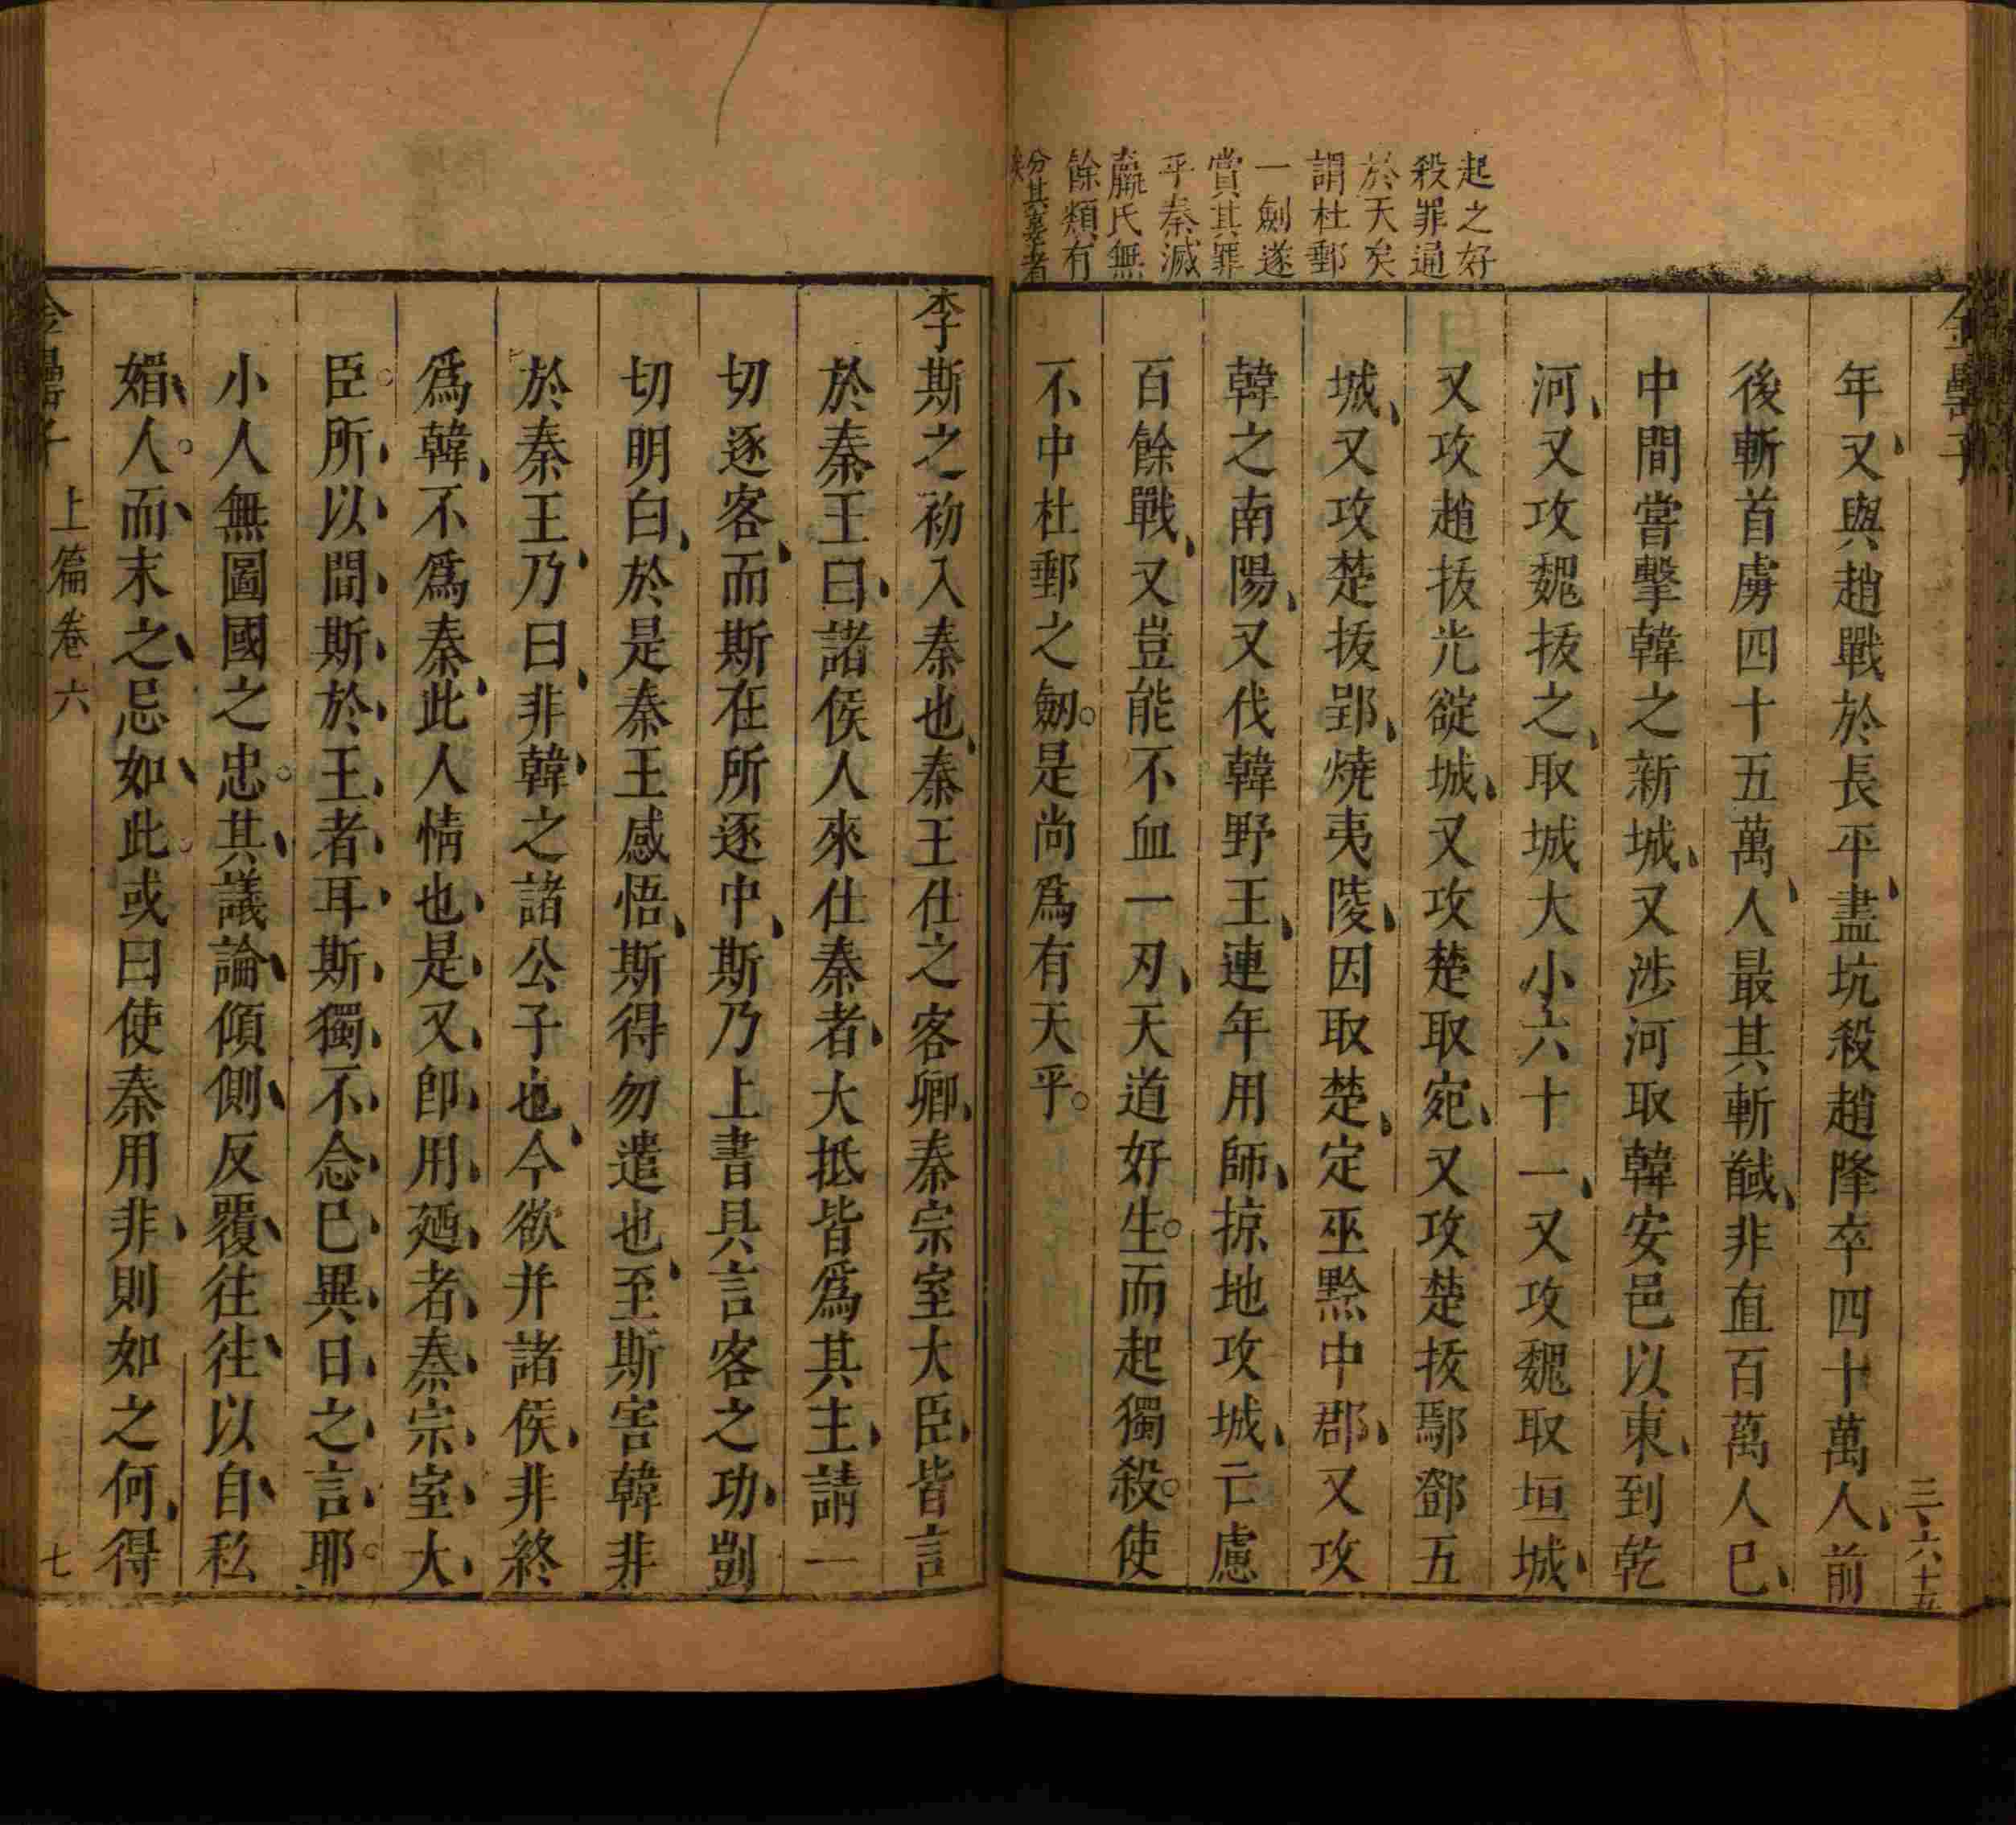 起之好
殺罪通
於天矣
謂杜郵
一劍遂
賞其罪
乎秦滅
嬴氏無
餘類有
金罍子
三六十五
年又與趙戰於長平盡坑殺趙降卒四十萬人前
後斬首虜四十五萬人最其斬馘非直百萬人已
中間嘗擊韓之新城又涉河取韓安邑以東到乾
河又攻魏拔之取城大小六十一又攻魏取垣城
又攻趙拔光㿝城又攻楚取宛又攻楚拔鄢鄧五
城又攻楚拔郢燒夷陵因取楚定巫黔中郡又攻
韓之南陽又伐韓野王連年用師掠地攻城亡慮
百餘戰又豈能不血一刃天道好生而起獨殺使
不中杜郵之劒是尚爲有天乎
李斯之初入秦也秦王仕之客卿秦宗室大臣皆言
於秦王曰諸侯人來仕秦者大抵皆爲其主請一
切逐客而斯在所逐中斯乃上書具言客之功剴
切明白於是秦王感悟斯得勿遣也至斯害韓非
於秦王乃曰非韓之諸公子也今欲并諸侯非終
爲韓不爲秦此人情也是又卽用廼者秦宗室大
臣所以間斯於王者耳斯獨不念已異日之言耶
小人無圖國之忠其議論傾側反覆往往以自私
媢人而末之忌如此或曰使秦用非則如之何得
金罍子 上篇卷六 七